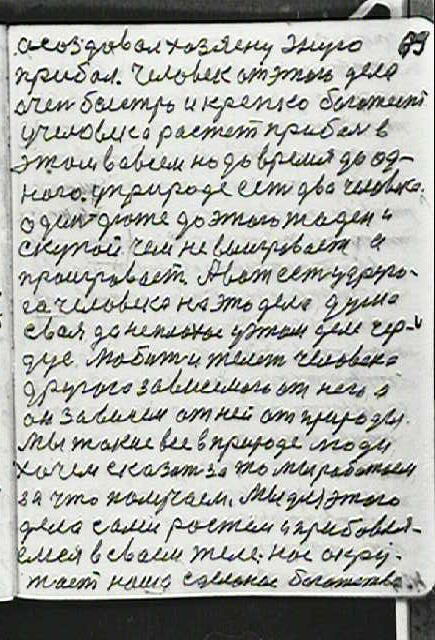 а создовал хозяену энуго 79
прибол. Человек от этого дела
очен быстро и крепко богатеет
у человека растет прибыл в
этом вовсем но до время до од-
ного. у природе ест два человека.
один дюже до этого жаден и
скупой чем не выигрывает а
проигрывает. А вот ест у друго-
га человека на это дела душа
своя да неплохое у этом деле сер-
дце любит и жалет человека
другога зависемого от него, а
он зависим от ней от природы.
Мы такие все в природе люди
хочем сказат за то мы работаем
за что получаем. Мы для этого
дела сами ростем и прибовля-
емся в своем теле. нас окру-
жает наша сделоное богатство.